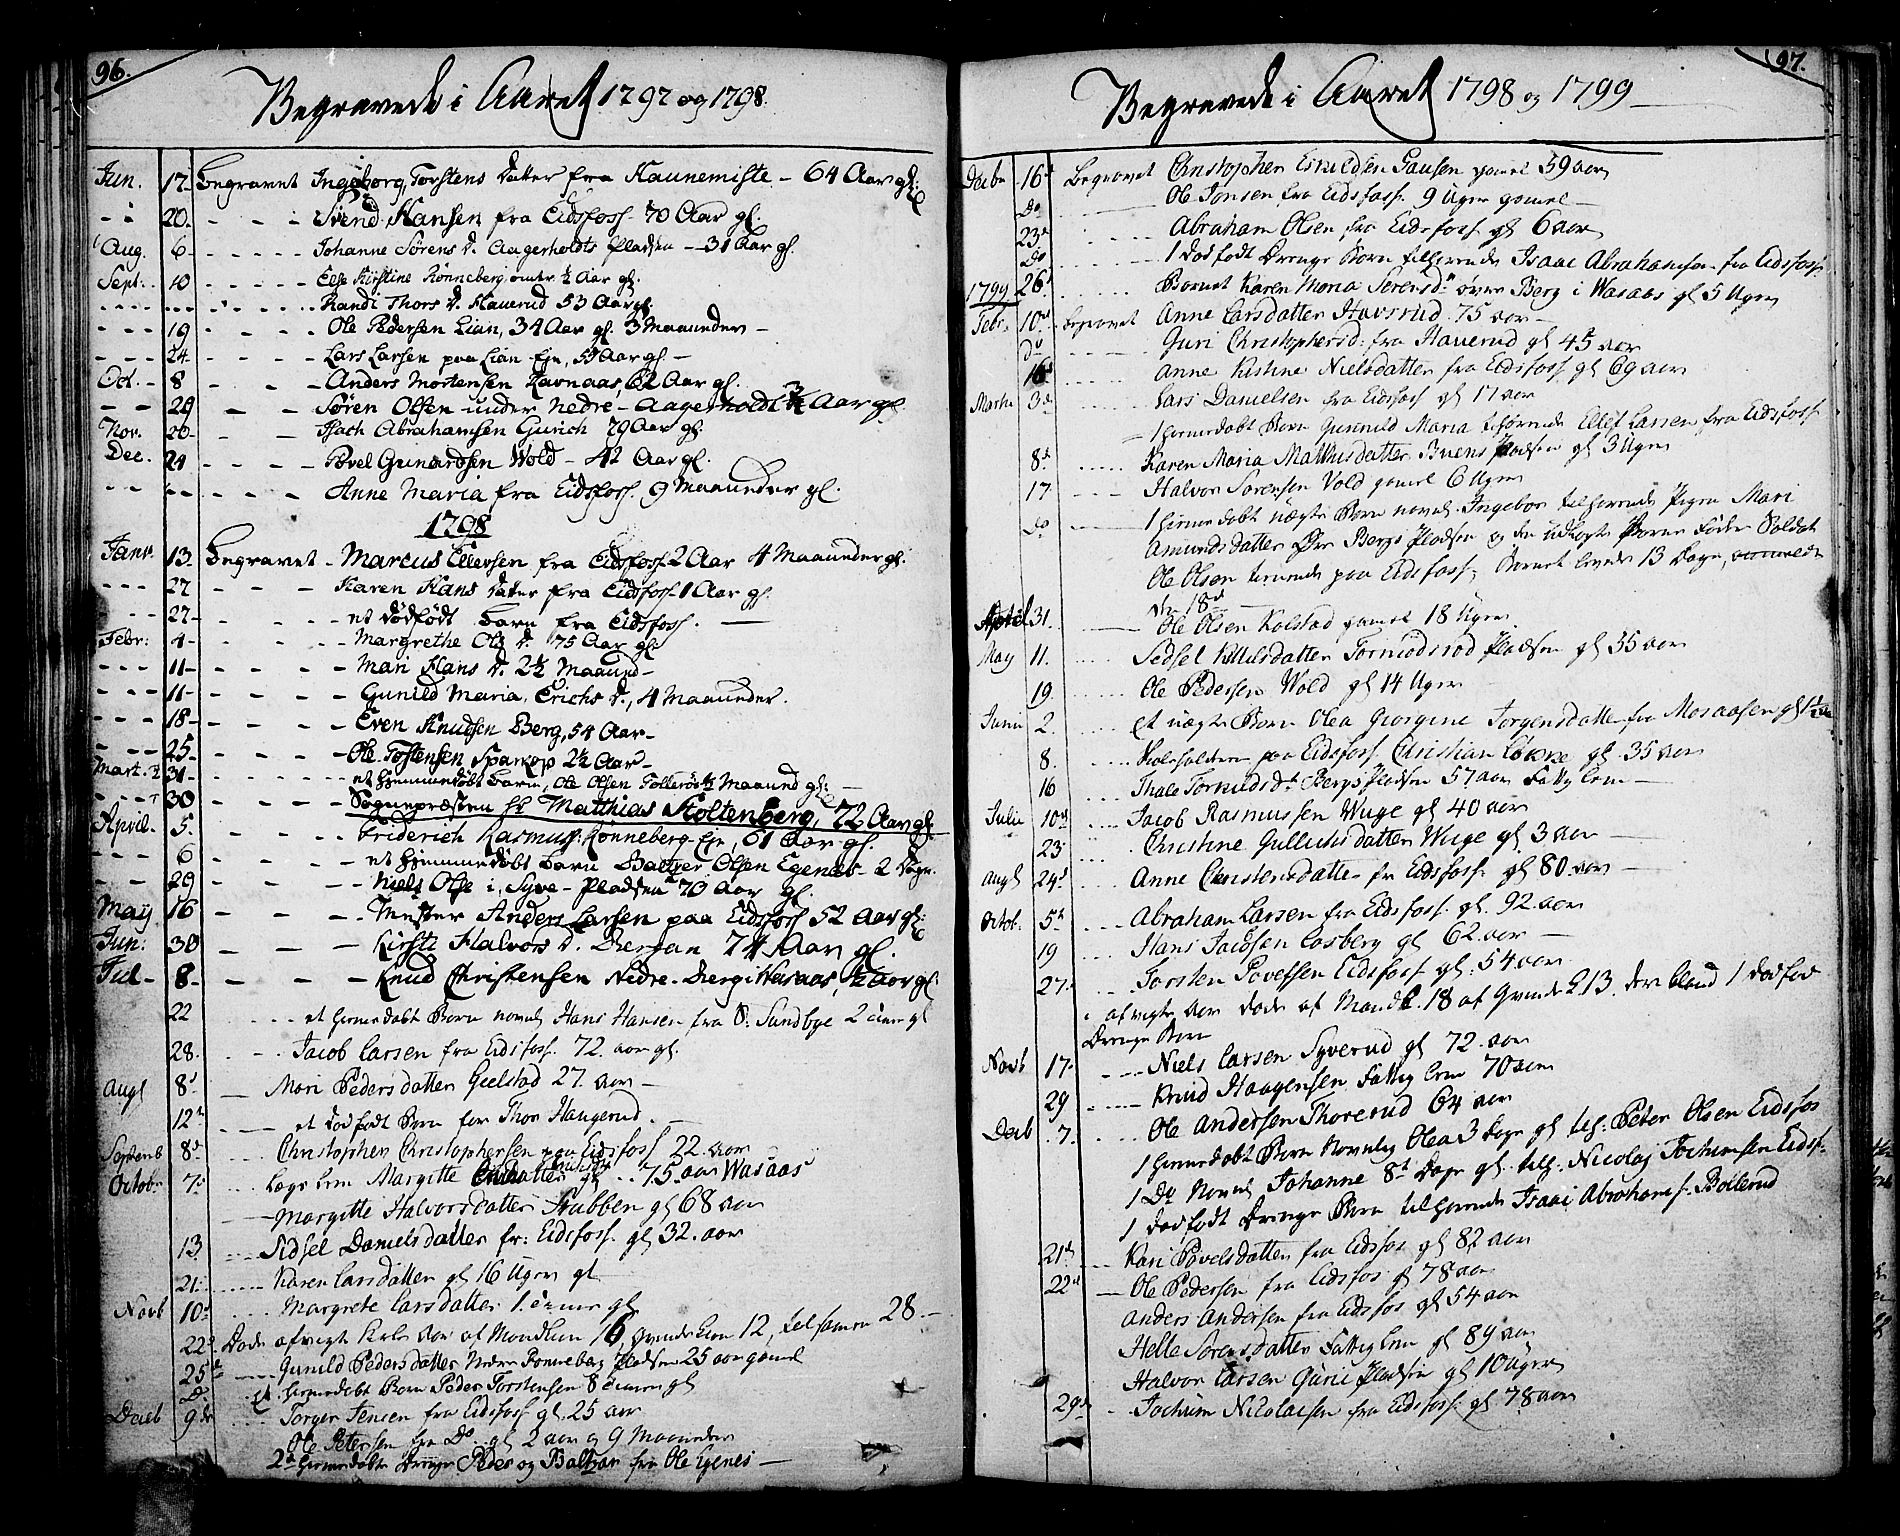 96.
Begravede i Aaret 1797 og 1798.
Jun. 17 Begravet Ingeborg Torstens Datter fra Haunemiste - 64 Aar gl:
20 Svend Hansen fra Eidsfoss 70 Aar gl.
Aug. 6 Johanne Sørens D. Aagerholdts Pladsen - 31 Aar gl.
Sept. 10 Else Kirstine Rønneberg omtr ½ Aar gl.
Randi Thors D. Haverud 53 Aar gl.
19 Ole Pedersen Lian, 34 Aar gl. 3 Maaneder -
24 Lars Larsen paa Lian Eje, 59 Aar gl. -
Oct. 8 Anders Mortensen Ravnaas, 62 Aar gl.
29 Søren Olsen under Nedre - Aagerholdt ¾ Aar gl.
Nov. 20 Isach Abrahamsen Gurich 79 Aar gl.
Dec. 24 Povel Gunardsen Wold - 42 Aar gl.
Anne Maria fra Eidsfoss. 9 Maaneder gl.
1798
Janr. 13 Begravet - Marcus Ellevsen fra Eidsfoss 2 Aar 4 Maaneder gl.
27 Karen Hans Datter fra Eidsfoss 1 Aar gl.
27 et dødfødt Barn fra Eidsfoss. -
Febr: 4 Margrethe Ols D. 75 Aar gl.
11 Mari Hans D. 2½ Maaned -
11 Gunild Maria Erichs D., 4 Maaneder.
18 Even Knudsen Berg, 54 Aar -
25 Ole Tostensen Sparkop 2½ Aar -
Mart. 31 et hjemmedøbt Barn, Ole Olsen Tollerøs ½ Maaned gl. -
30 Sognepræsten Hr Matthias Stoltenberg, 72 Aar gl.
April. 5 Friderich Rasmuss: Rønneberg Eje, 61 Aar gl.
6 et hjemmedøbt Barn Baltzer Olsen Egenæs - 2 Dage.
29 Niels Olse i Syve - Pladsen 70 Aar gl.
May 16 Mester Anders Larsen paa Eidsfoss 52 Aar gl:
Jun: 30 Kirsti Halvors D. Bergan 74 Aar gl.
Jul - 8 Knud Christensen Nedre - Berg i Wasaas, ½ Aar gl.
22 et hiemedøbt Barn navnl Hans Hansen fra S. Sundbye 2 uger gl
28. Jacob Larsen fra Eidsfoss. 72. aar gl.
Augl 8d Mari Pedersdatter Gielstad 27. aar -
12t et dødfødt Barn for Thor Haugerud. -
Septemb 8d Christopher Christophersen paa Eidsfoss 22. aar
Octob. 7d Lægs Lem Margitte gl 75 aar Wasaas
Margitte Halvorsdatter Stubben gl 68 aar
13 Sidsel Danielsdatter fr: Eidsfoss. gl 32. aar
21. Karen Larsdatter gl 16 Ugers gl
Novb 10d Margrete Larsdatter 1. time gl
22d Døde afvigte Kirke Aar af Mandkøn 16 Qvindekøn 12, tilsamen 28. -
25d Gunild Pedersdatter Nedre Rønneberg Pladsen 25 aar gamel
Do Et hiemedøbt Barn Peder Torstensen 8 timer gl
Decb 9d Torger Jensen fra Eidsfoss gl. 25 aar
Ole Petersen fra Do gl 2 aar og 9 Maaneder
2d hiemedøbte Drenge Peder og Baltzar fra Ole Egenes -
97.
Begravede i Aaret 1798 og 1799
Decbr 16d Begravet Christopher Esnildsen Gausen gamel 39 aar
Do Ole Jonsen fra Eidsfoss. 9 Uger gamel -
23d Abraham Olsen fra Eidsfoss gl 6 aar
Do 1 dødfødt Drenge Barn tilhørende Isaac Abrahamsen fra Eidsfoss
1799 26 Barnet Karen Maria Sørensdr øvre Berg i Wasaas gl 5 Uger
Febr. 10d begravet Anne Larsdatter Havsrud 75 aar -
Do Guri Christophersd: fra Haverud gl 45 aar
16d Anne Kistine Nielsdatter fra Eidsfoss gl 69 aar
Marti 3d Lars Danielsen fra Eidsfoss gl 17 aar
1 hiemedøbt Barn Gunnild Maria tilhørende Ellef Larsen fra Eidsfoss
8d Karen Maria Mathisdatter Buens Pladsen gl 3 Uger
17 Halvor Sørensen Vold gamel 6 Uger
Do 1 hiemedøbt uægte Barn navnl. Ingebor tilhørende Pigen Mari
Amundsdatter Øvr Bergs Pladsen og den udlagte Barne Fader Soldat
Ole Olsen tienende paa Eidsfoss, Barnet levede 13 Dage,
den 18d
April 31. Ole Olsen Kolstad gamel 18 Uger.
May 11. Sidsel Nilsdatter Tormodsrød Pladsen gl 35 aar
19. Ole Pedersen Wold gl 14 Uger
Junii 2. et uægte Barn Olea Giorgine Jørgensdatter fra Mosaasen gl 1½
8. Skoleholderen paa Eidsfoss. Christian Løkke gl 35 aar
16 Thale Tormudsdr Bergs Pladsen 57 aar Fattig Lem -
Julii 10d Jacob Rasmussen Wuge gl 40 aar
23 Christine Gulluksdatter Wuge gl 3 aar -
augl 24d Anne Christensdatter fr Eidsfoss. gl 80 aar -
Octob. 5d Abraham Larsen fra Eidsfoss. gl. 92. aar
19 Hans Jacobsen Aasberg gl 62. aar -
27. Torsten Povelsen Eidsfoss gl. 54 aar
i afvigte Aar døde af Mandk. 18 af Qvinde K 13. der ibland 1 dødfød
Drenge Barn
Novb 17. Niels Larsen Syverud gl 72. aar
29 Knud Haagensen Fattig Lem 70 aar
Decb 7. Ole Andersen Thorerud 64 aar
1 hiemedøbt Barn Navnlig Olea 3 Dage gl tilh: Peter Olsen Eidsfos
1 Do Navnl Johanne 8t Dage gl. tilh: Nicolaj Jochumsen Eidsf.
1 dødfødt Drenge Barn tilhørende Isaac Abrahams: Bollerud
21d Kari Povelsdatter fra Eidsfos gl 82 aar
22d Ole Pedersen fra Eidsfos gl 78 aar
Anders Andersen fra Eidsfos gl 54 aar
Helle Sørensdatter Fattig Lem gl 89 aar
Halvor Larsen Gurie Pladsen gl 10 Uger
29d Jochum Nicolaisen fra Eidsfoss. gl 78 aar